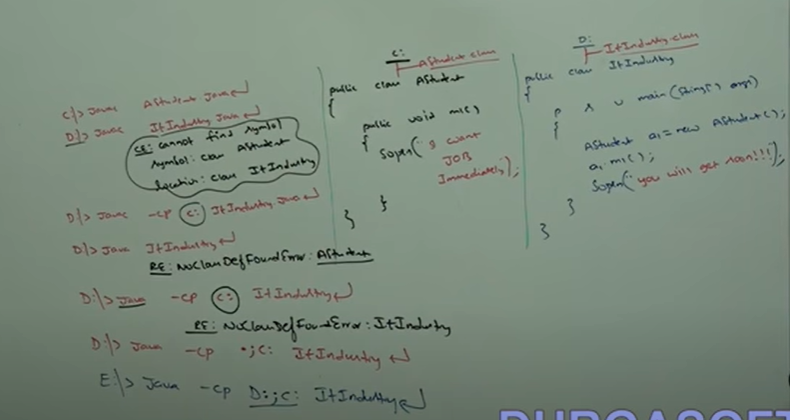 C:\> Javac AStudent.Java↵
D:\> Javac ItIndustry.Java↵
CE: cannot find symbol
symbol: class AStudent
location: class ItIndustry
D:\> Javac -cp C: ItIndustry.Java↵
D:\> Java ItIndustry↵
RE: NoClassDefFoundError: AStudent
D:\> Java -cp C: ItIndustry↵
RE: NoClassDefFoundError: ItIndustry
D:\> Java -cp .;C: ItIndustry↵
E:\> Java -cp D:;C: ItIndustry↵
C:
AStudent.class
public class AStudent
{
public void m1()
{
Sopln("I want
JOB
Immediately");
}
}
D:
ItIndustry.class
public class ItIndustry
{
p s v main(String[] args)
{
AStudent a1=new AStudent();
a1.m1();
Sopln("you will get soon!!!");
}
}
DURGASOFT